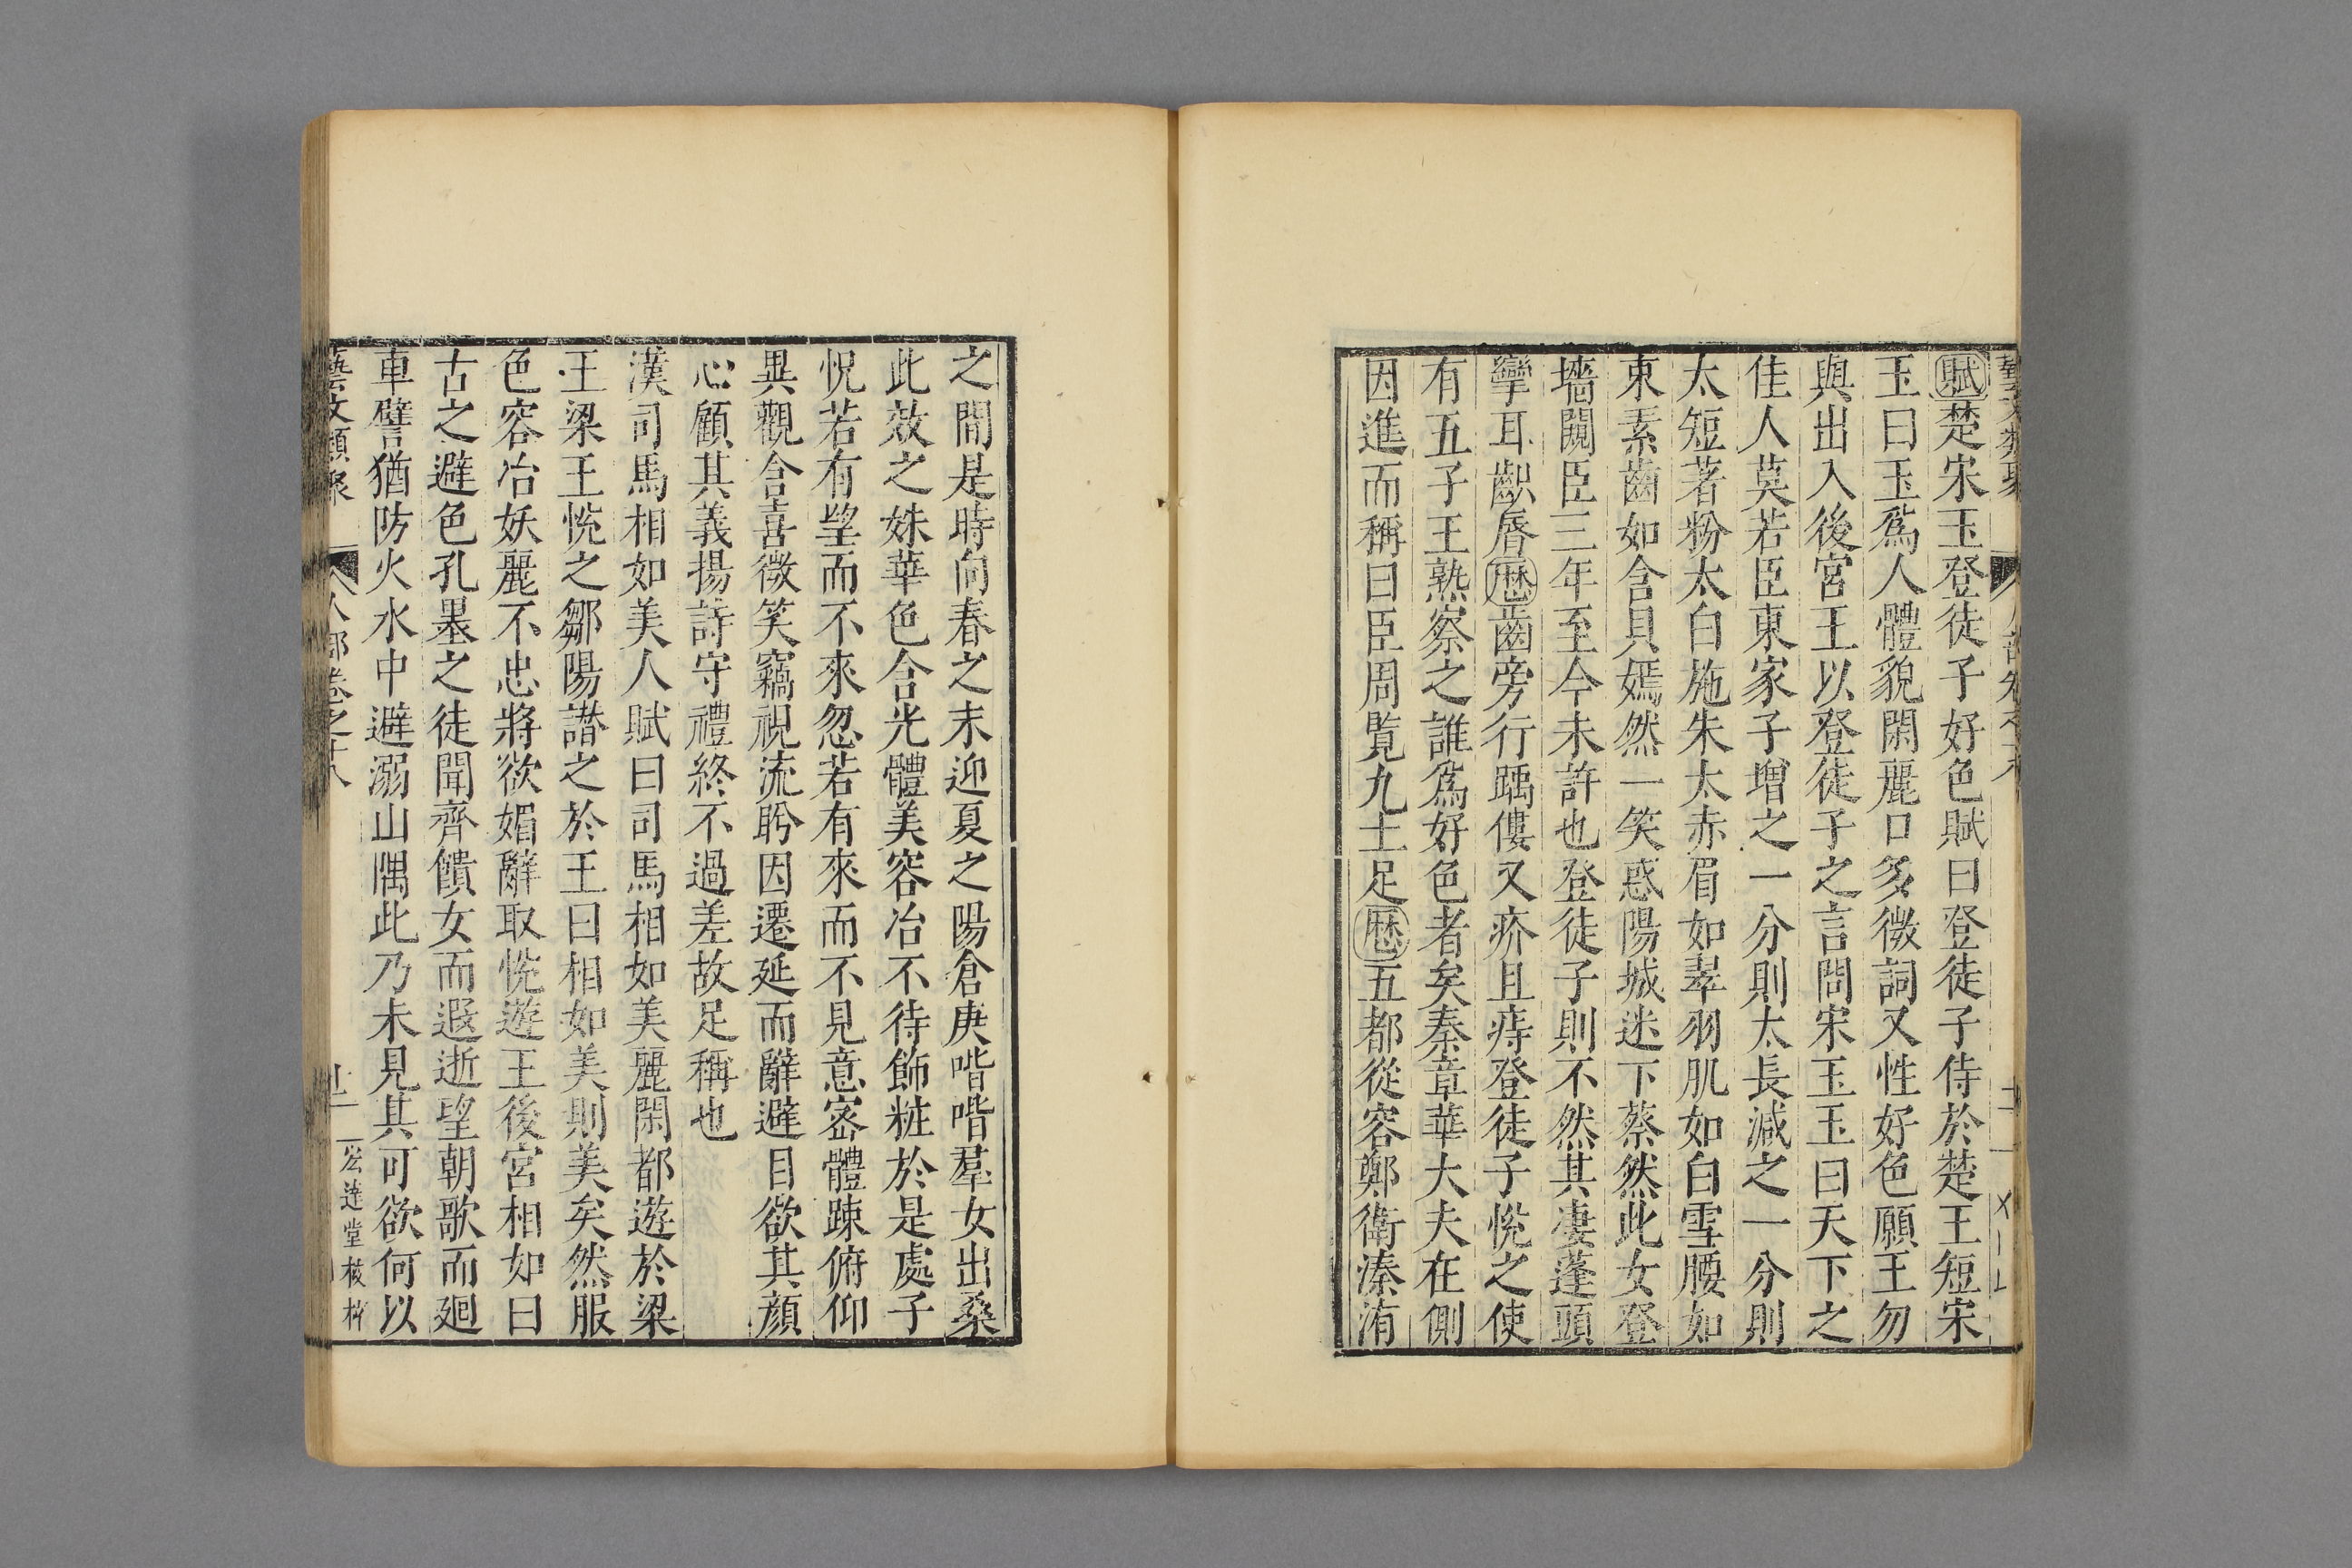 賦楚宋玉登徒子好色賦曰登徒子侍於楚王短宋
玉曰玉爲人體貌閑麗口多微詞又性好色願王勿
與出入後宮王以登徒子之言問宋玉玉曰天下之
佳人莫若臣東家子增之一分則太長減之一分則
太短著粉太白施朱太赤眉如翠羽肌如白雪腰如
束素齒如含貝嫣然一笑惑陽城迷下蔡然此女登
墻闚臣三年至今未許也登徒子則不然其凄蓬頭
攣耳齞脣歷齒旁行踽僂又疥且痔登徒子悅之使
有五子王熟察之誰爲好色者矣秦章華大夫在側
因進而稱曰臣周覽九土足歷五都從容鄭衛溱洧
之間是時向春之末迎夏之陽倉庚喈喈羣女出桑
此效之姝華色含光體美容冶不待飾粧於是處子
怳若有望而不來忽若有來而不見意密體疎俯仰
異觀含喜微笑竊視流眄因遷延而辭避目欲其顔
心顧其義揚詩守禮終不過差故足稱也
漢司馬相如美人賦曰司馬相如美麗閑都遊於梁
王梁王悅之鄒陽譖之於王曰相如美則美矣然服
色容冶妖麗不忠將欲媚辭取悅遊王後宮相如曰
古之避色孔墨之徒聞齊饋女而遐逝望朝歌而廻
車譬猶防火水中避溺山隅此乃未見其可欲何以
藝文類聚 人部卷之十八 宏達堂校栞